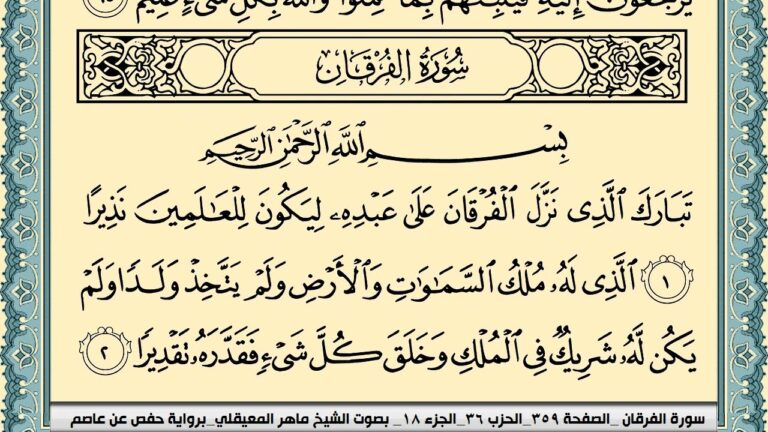 يُرْجَعُونَ إِلَيْهِ فَيُنَبِّئُهُم بِمَا عَمِلُوا۟ وَٱللَّهُ بِكُلِّ شَىْءٍ عَلِيمٌۢ ٦٤
سُورَةُ الفُرْقَانِ
بِسْمِ ٱللَّهِ ٱلرَّحْمَٰنِ ٱلرَّحِيمِ
تَبَارَكَ ٱلَّذِى نَزَّلَ ٱلْفُرْقَانَ عَلَىٰ عَبْدِهِۦ لِيَكُونَ لِلْعَٰلَمِينَ نَذِيرًا
١ ٱلَّذِى لَهُۥ مُلْكُ ٱلسَّمَٰوَٰتِ وَٱلْأَرْضِ وَلَمْ يَتَّخِذْ وَلَدًا وَلَمْ
يَكُن لَّهُۥ شَرِيكٌ فِى ٱلْمُلْكِ وَخَلَقَ كُلَّ شَىْءٍ فَقَدَّرَهُۥ تَقْدِيرًا ٢
سورة الفرقان _الصفحة ٣٥٩_الحزب ٣٦_الجزء ١٨_ بصوت الشيخ ماهر المعيقلي_برواية حفص عن عاصم